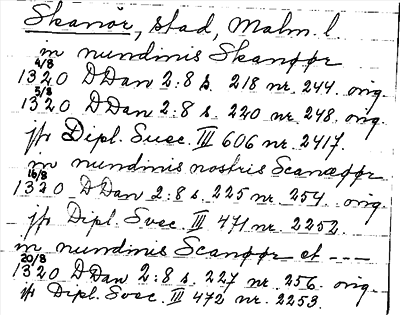 Skanör, stad, Malm. l.
in nundinis Skanøør
4/8
1320 DDan 2:8 s. 218 nr. 244. orig.
5/8
1320 DDan 2:8 s. 220 nr. 248. orig.
jfr Dipl. Suec. III 606 nr. 2417.
in nundinis nostris Scanæøør
16/8
1320 DDan 2:8 s. 225 nr. 254. orig.
jfr Dipl. Svec. III 471 nr. 2252.
in nundinis Scanøør et ---
20/8
1320 DDan 2:8 s. 227 nr. 256. orig.
jfr Dipl. Svec. III 472 nr. 2253.